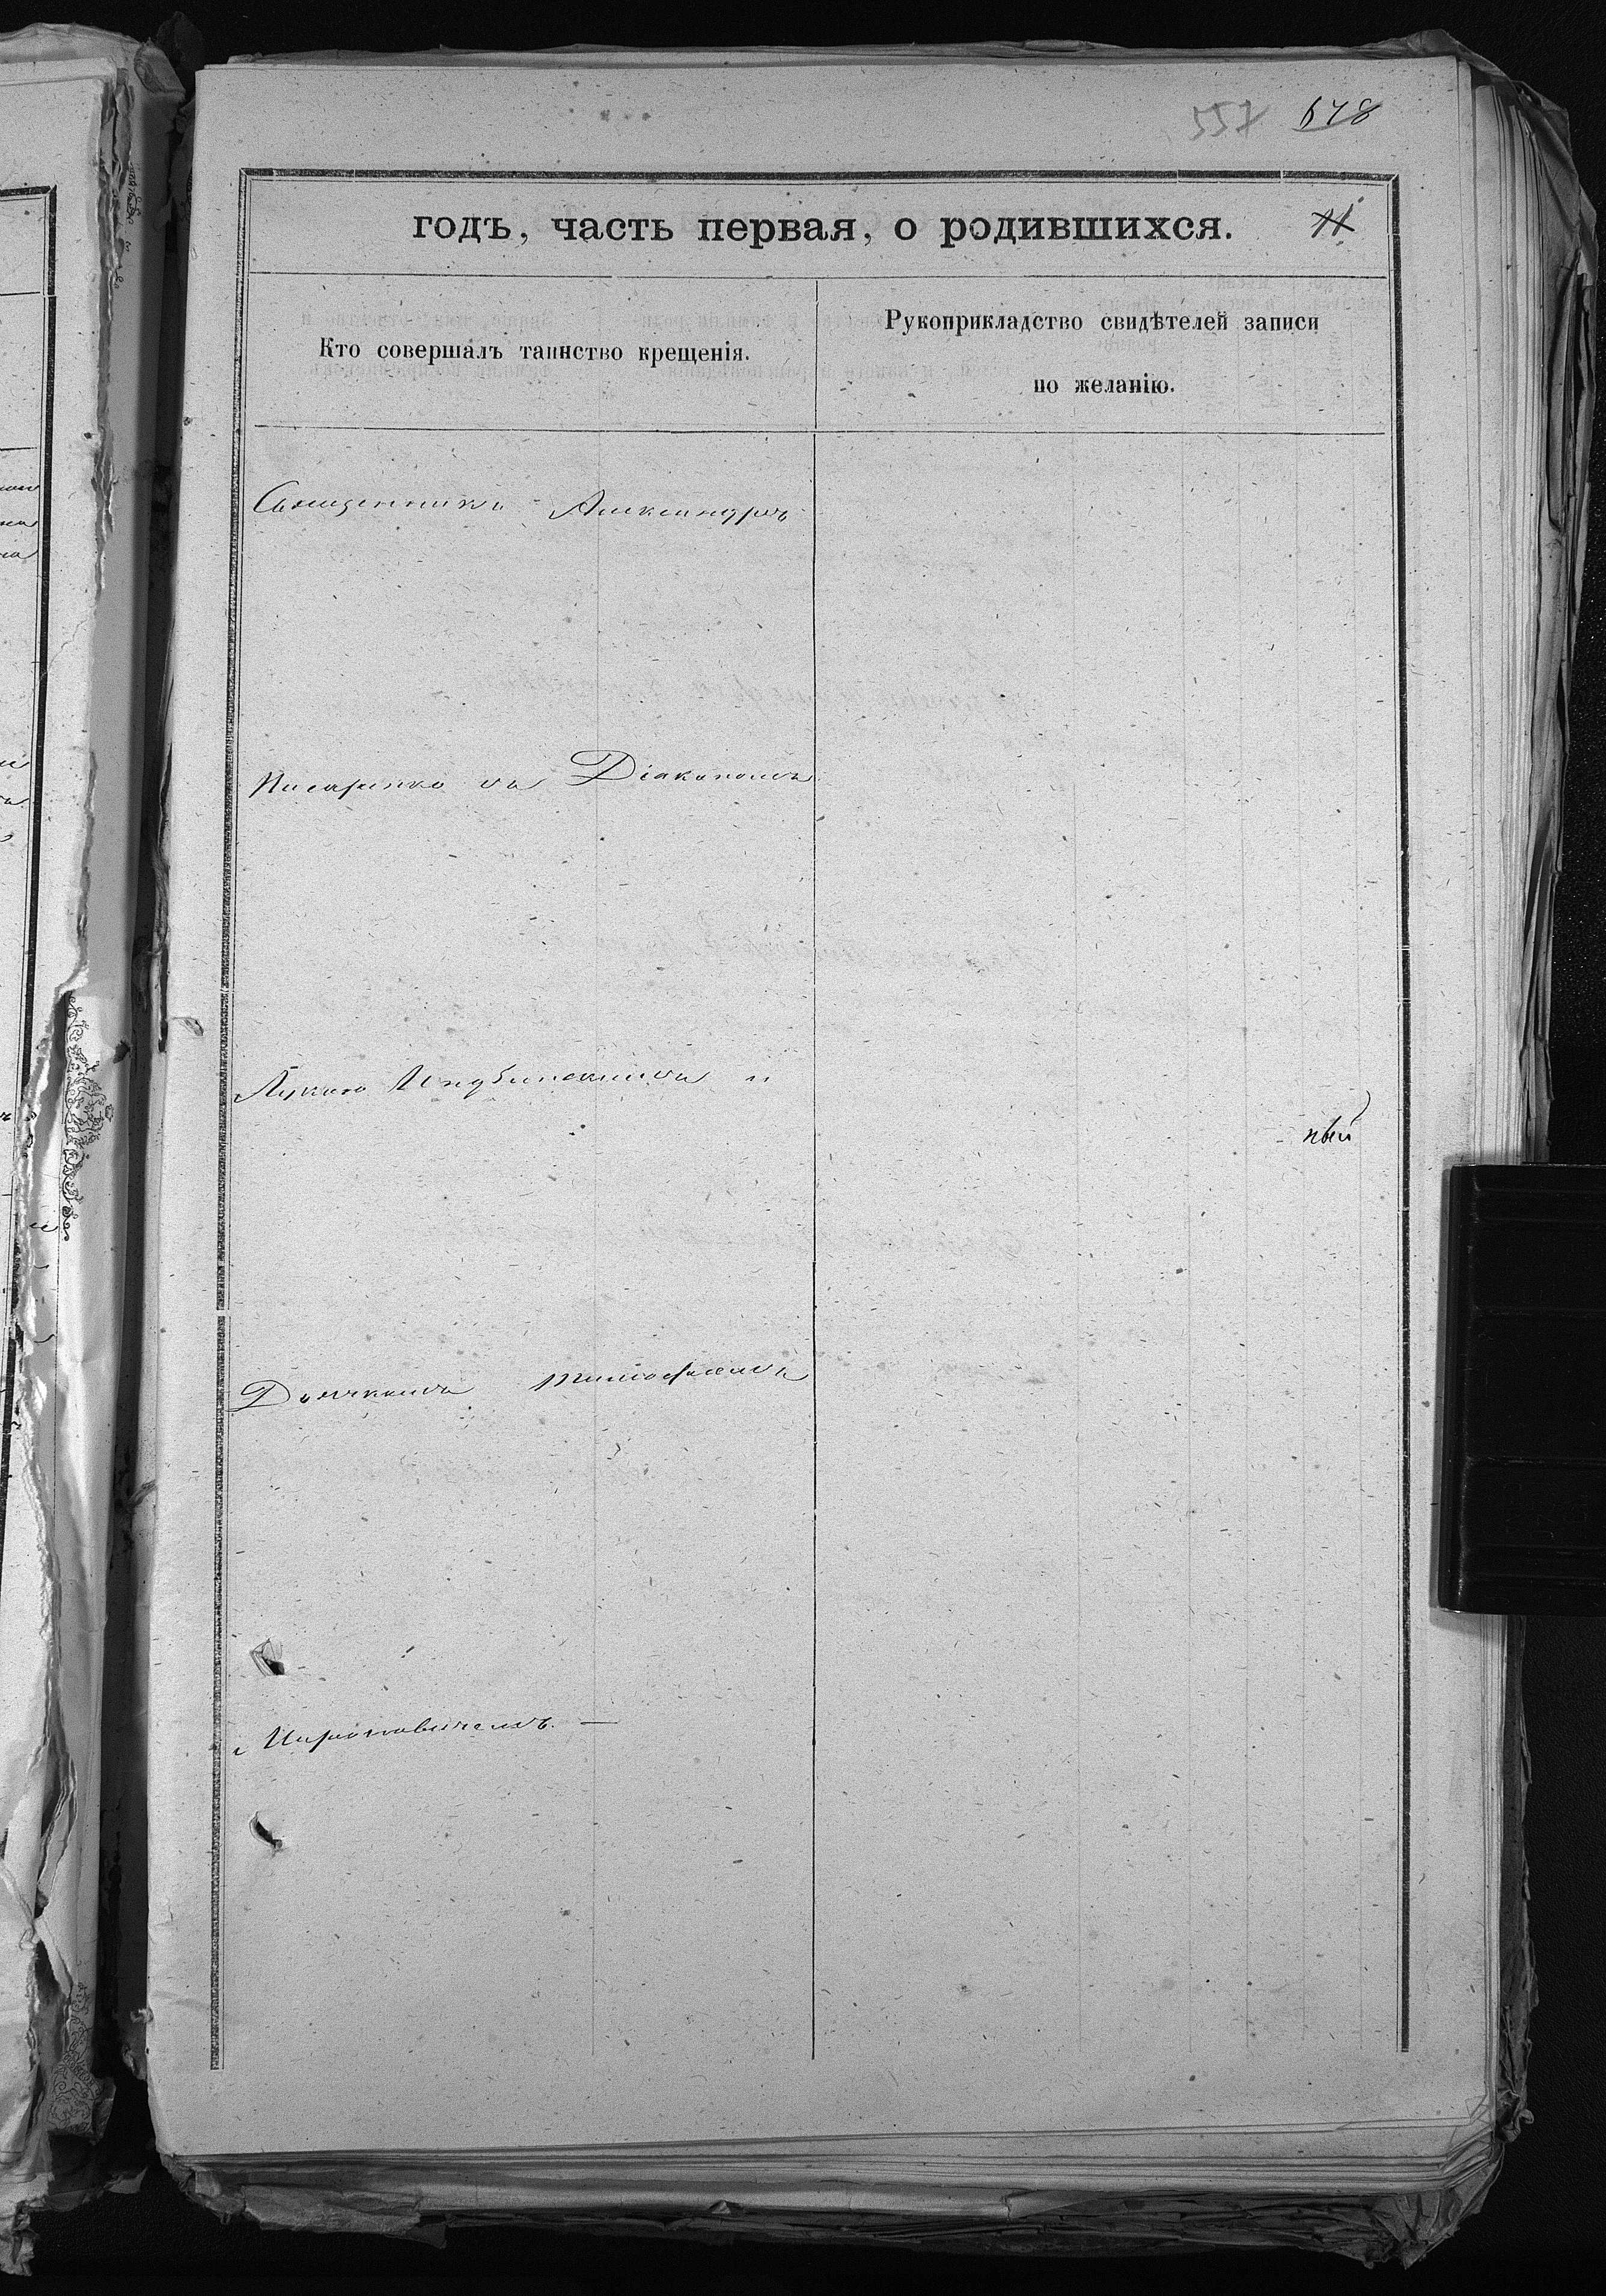 557 648
годъ, часть первая, о родившихся. 11.
Кто совершалъ таинство крещенія.
Рукоприкладство свидѣтелей записи
по желанію.
Священникъ Александръ
Писаренко съ Діакономъ
Лукою и
ный
Дьячкомъ Тимофеемъ
Мироновичемъ. —